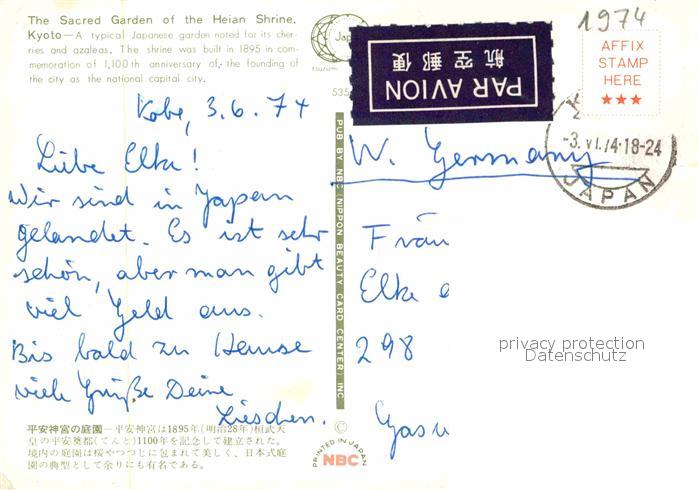 The Sacred Garden of the Heian Shrine.
Kyoto—A typical Japanese garden noted for its cher-
ries and azaleas. The shrine was built in 1895 in com-
memoration of 1,100th anniversary of the founding of
the city as the national capital city.
Kobe, 3.6.74
Liebe Elke!
Wir sind in Japan
gelandet. Es ist sehr
schön, aber man gibt
viel Geld aus.
Bis bald zu Hause
viele Grüße Deine
Lieschen.
平安神宮の庭園—平安神宮は1895年(明治28年)桓武天
皇の平安奠都(てんと)1100年を記念して建立された。
境内の庭園は桜やつつじに包まれて美しく、日本式庭
園の典型として余りにも有名である。
PUB BY NBC (NIPPON BEAUTY CARD CENTER) INC
©
PRINTED IN JAPAN
NBC
535
PAR AVION
航空郵便
1974
AFFIX
STAMP
HERE
-3.VI.74.18-24
JAPAN
W. Germany
Elke
298
privacy protection
Datenschutz